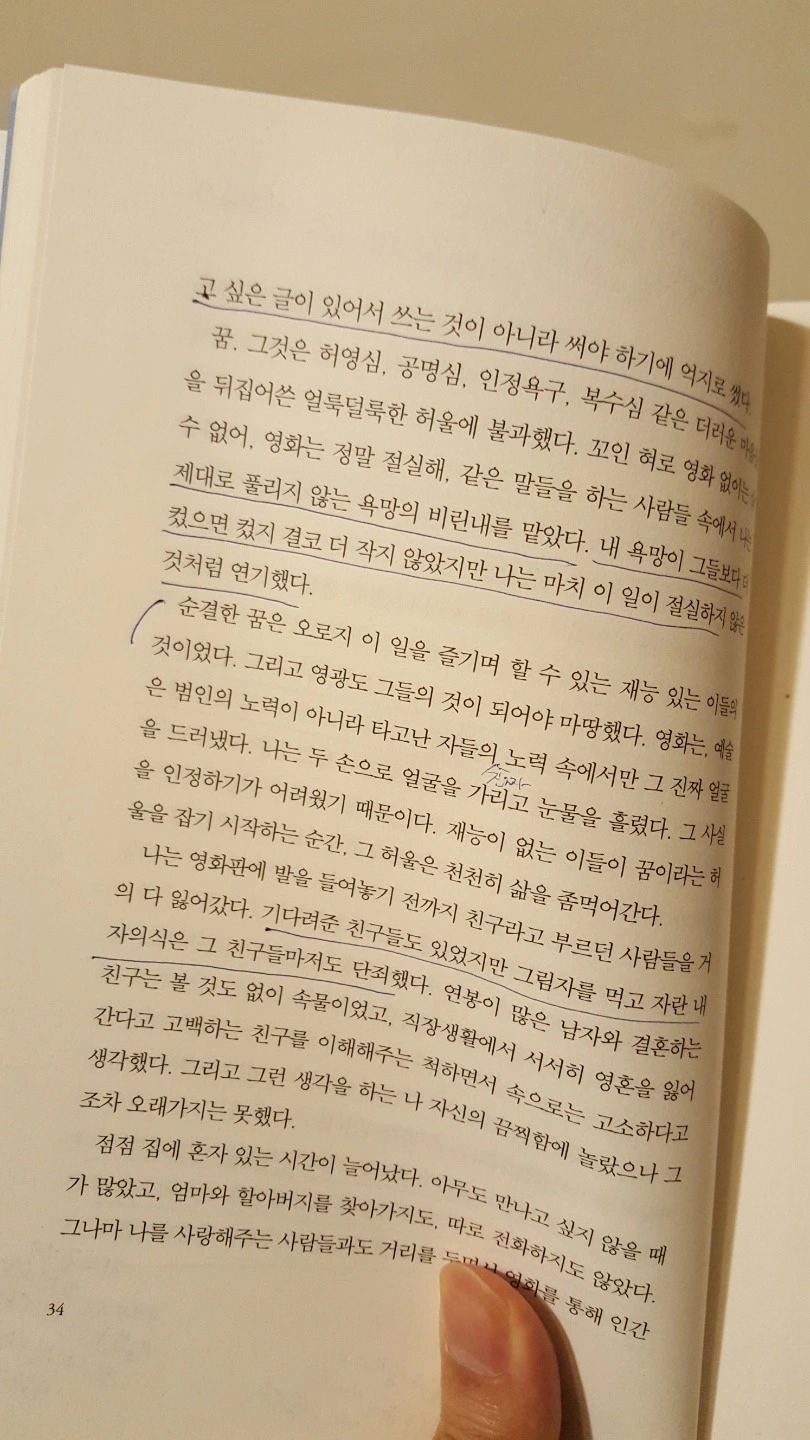 고 싶은 글이 있어서 쓰는 것이 아니라 써야 하기에 억지로 썼다.
꿈. 그것은 허영심, 공명심, 인정욕구, 복수심 같은 더러운 마음
을 뒤집어쓴 얼룩덜룩한 허울에 불과했다. 꼬인 혀로 영화 없이는
수 없어, 영화는 정말 절실해, 같은 말들을 하는 사람들 속에서 나는
제대로 풀리지 않는 욕망의 비린내를 맡았다. 내 욕망이 그들보다 더
컸으면 컸지 결코 더 작지 않았지만 나는 마치 이 일이 절실하지 않은
것처럼 연기했다.
순결한 꿈은 오로지 이 일을 즐기며 할 수 있는 재능 있는 이들의
것이었다. 그리고 영광도 그들의 것이 되어야 마땅했다. 영화는, 예술
은 범인의 노력이 아니라 타고난 자들의 노력 속에서만 그 진짜 얼굴
을 드러냈다. 나는 두 손으로 얼굴을 가리고 눈물을 흘렸다. 그 사실
을 인정하기가 어려웠기 때문이다. 재능이 없는 이들이 꿈이라는 허
울을 잡기 시작하는 순간, 그 허울은 천천히 삶을 좀먹어간다.
나는 영화판에 발을 들여놓기 전까지 친구라고 부르던 사람들을 거
의 다 잃어갔다. 기다려준 친구들도 있었지만 그림자를 먹고 자란 내
자의식은 그 친구들마저도 단죄했다. 연봉이 많은 남자와 결혼하는
친구는 볼 것도 없이 속물이었고, 직장생활에서 서서히 영혼을 잃어
간다고 고백하는 친구를 이해해주는 척하면서 속으로는 고소하다고
생각했다. 그리고 그런 생각을 하는 나 자신의 끔찍함에 놀랐으나 그
조차 오래가지는 못했다.
점점 집에 혼자 있는 시간이 늘어났다. 아무도 만나고 싶지 않을 때
가 많았고, 엄마와 할아버지를 찾아가지도, 따로 전화하지도 않았다.
그나마 나를 사랑해주는 사람들과도 거리를 영화를 통해 인간
34